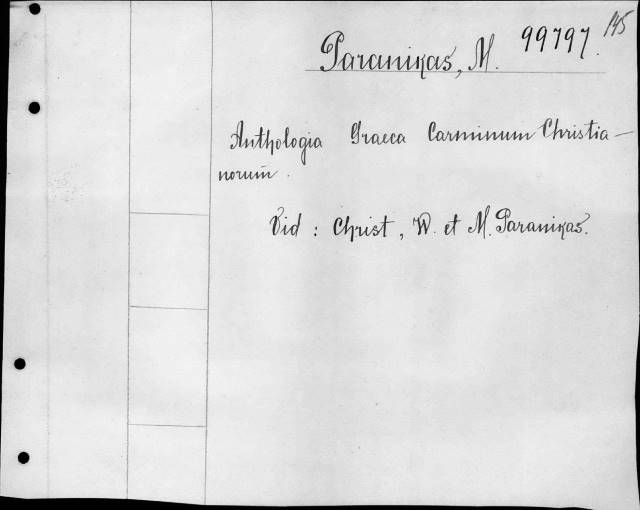 145
Paranikas, M. 99797.
Anthologia Graeca Carminum Christia-
norum.
Vid: Christ, W. et M. Paranikas.